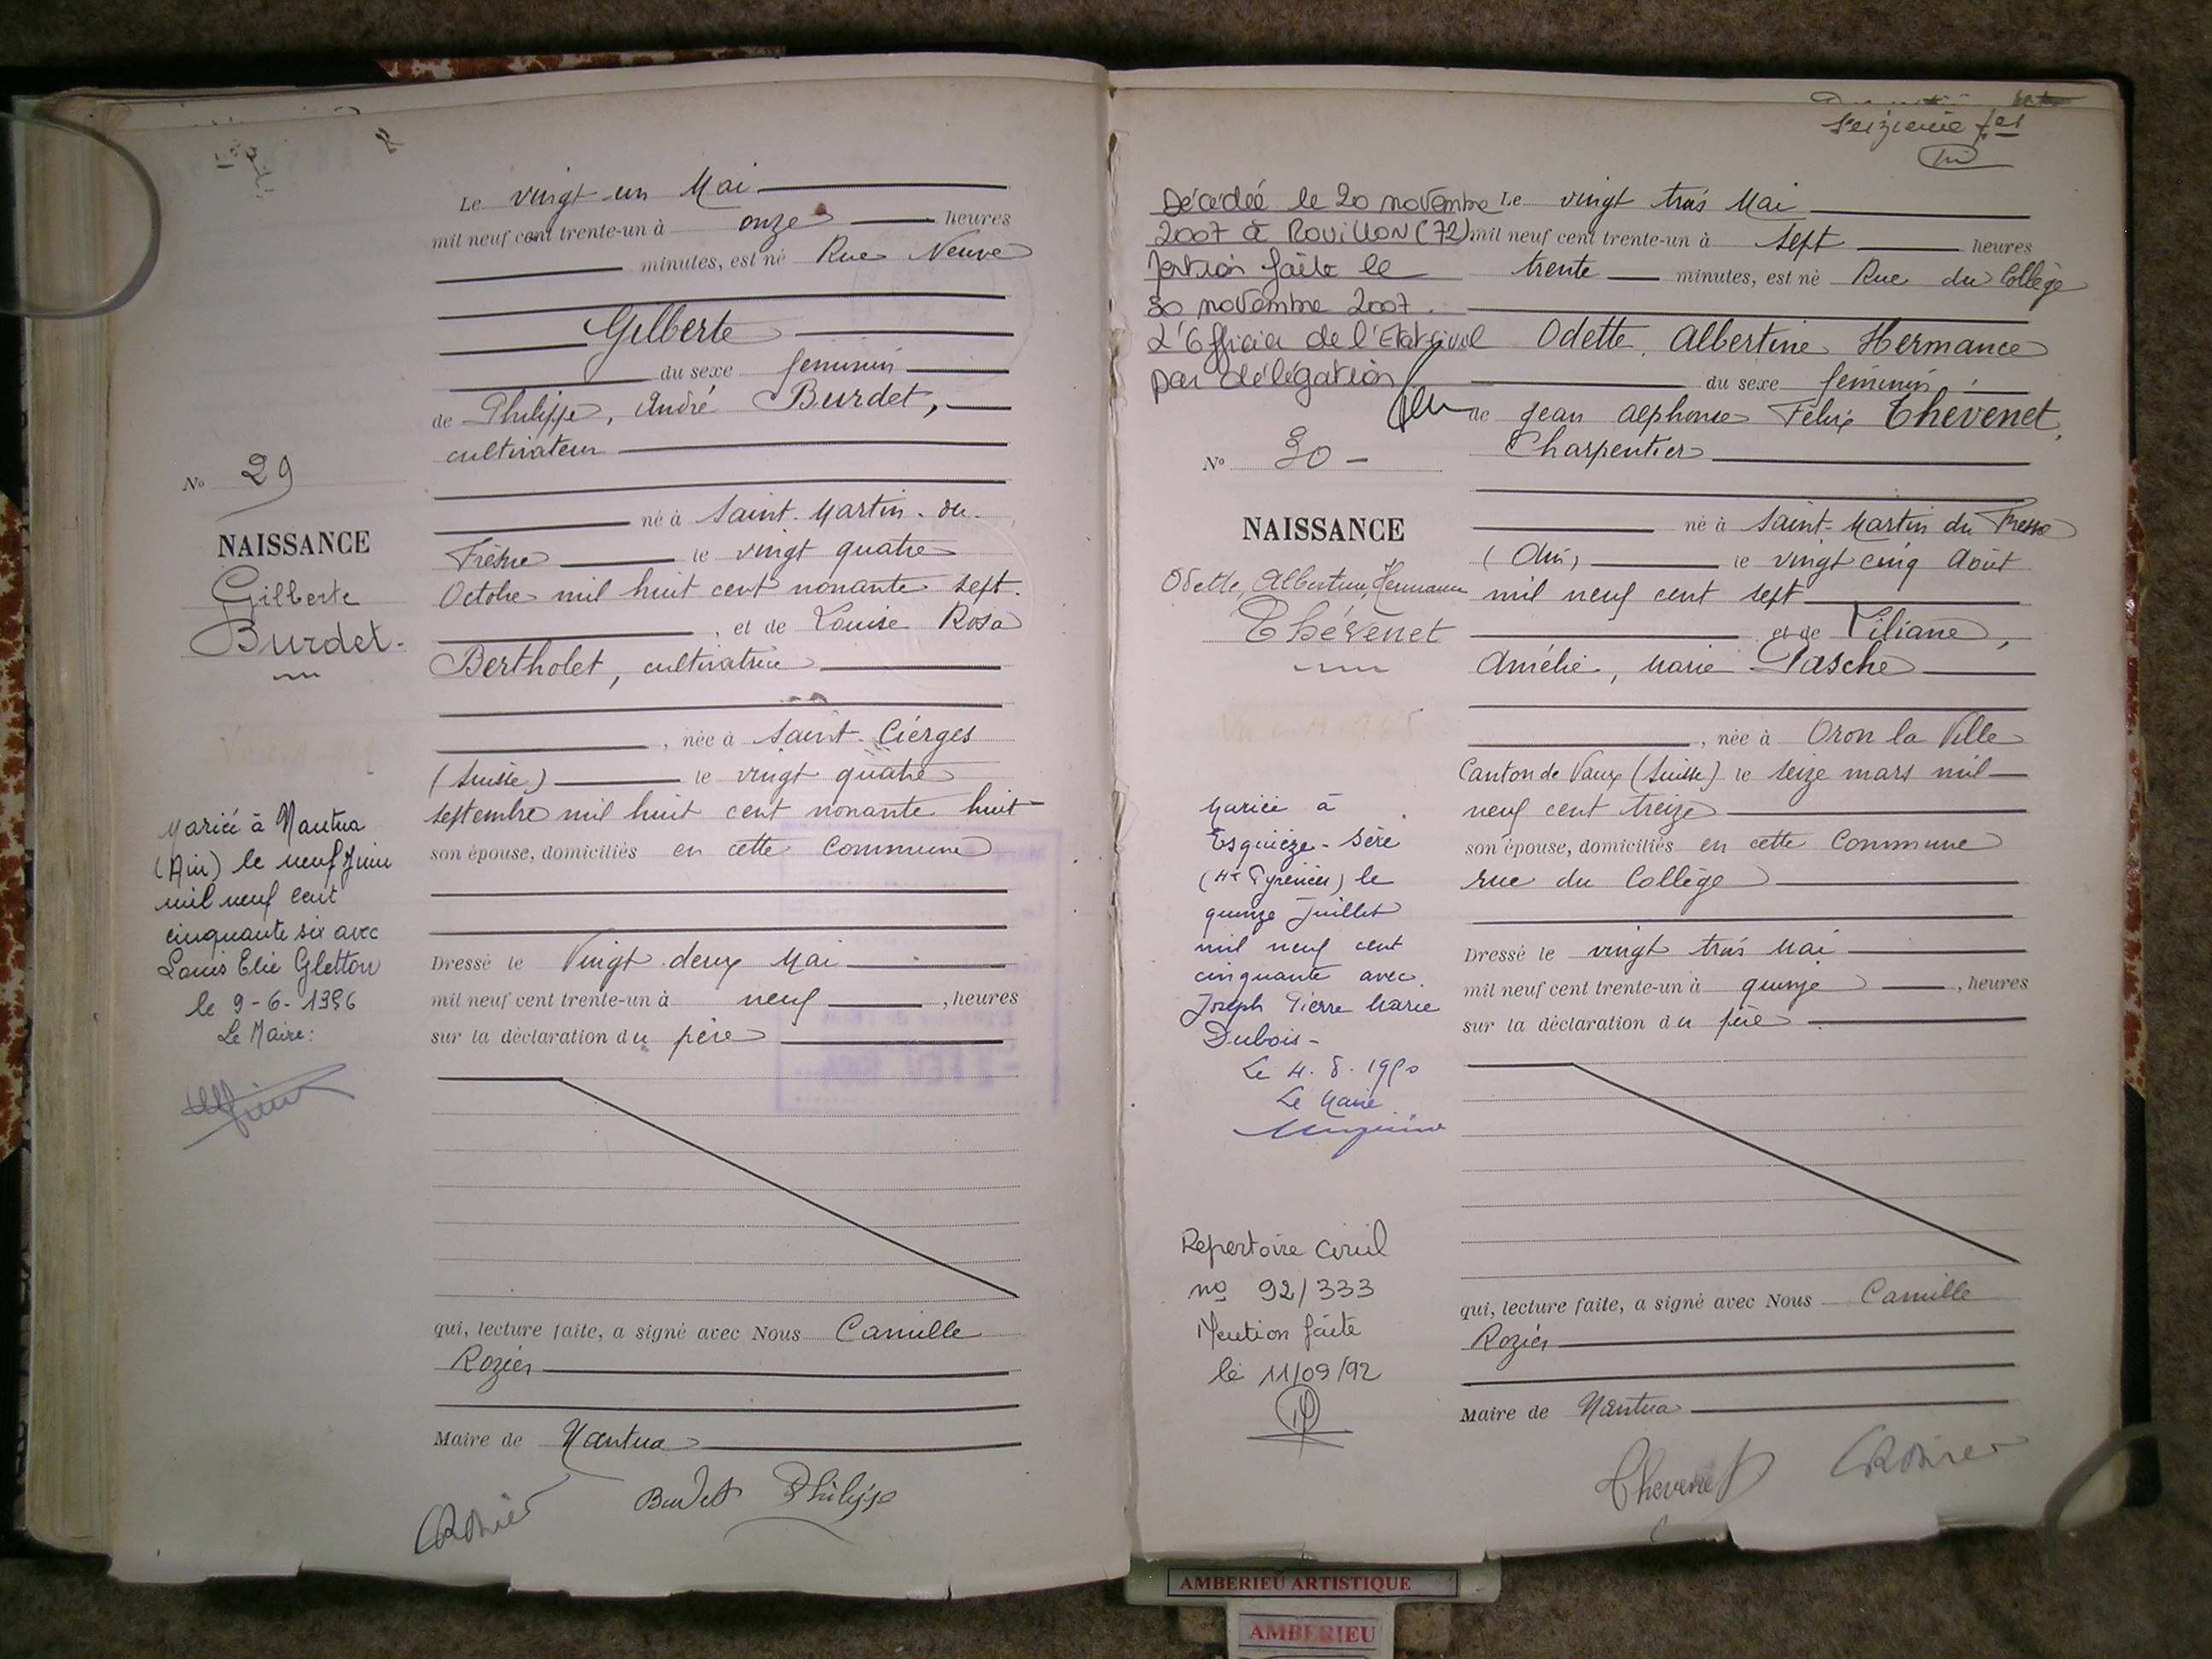 Le vingt-un Mai
mil neuf cent trente-un à onze heures
minutes, est né Rue Neuve
Gilberte
du sexe féminin
de Philippe, André Burdet,
cultivateur
No 29
né à Saint-Martin-du-
NAISSANCE
Frêsne le vingt quatre
Gilberte
Octobre mil huit cent nonante sept.
Burdet.
, et de Louise Rosa
Bertholet, cultivatrice
, née à Saint-Cierges
(Suisse) le vingt quatre
septembre mil huit cent nonante huit
son épouse, domiciliés en cette Commune
Mariée à Nantua
(Ain) le neuf Juin
mil neuf cent
cinquante six avec
Louis Elie Gletton
le 9-6-1956
Le Maire:
Dressé le Vingt deux Mai
mil neuf cent trente-un à neuf, heures
sur la déclaration du père
qui, lecture faite, a signé avec Nous Camille
Rozier
Maire de Nantua
Burdet Philippe
seizième
Décédée le 20 novembre
2007 à ROUILLON (72)
faite le
30 novembre 2007.
L'Officier de l'Etat-civil
par délégation
Le vingt trois Mai
mil neuf cent trente-un à sept heures
trente minutes, est né Rue du Collège
Odette Albertine Hermance
du sexe féminin
de Jean Alphonse Félix Thévenet,
Charpentier
No 30 -
né à Saint-Martin du Fresne
NAISSANCE
(Ain) le vingt cinq Août
Odette, Albertine, Hermance
mil neuf cent sept
Thévenet
et de Liliane,
Amélie, Marie Pasche
, née à Oron la Ville
Canton de Vaux (Suisse) le seize mars mil
neuf cent treize
son épouse, domiciliés en cette Commune
rue du Collège
Mariée à
Esquièze-Sère
(Htes Pyrénées) le
quinze Juillet
mil neuf cent
cinquante avec
Joseph Pierre Marie
Dubois-
Le 4.8.1950
Le Maire
Dressé le vingt trois Mai
mil neuf cent trente-un à quinze, heures
sur la déclaration du père
Repertoire Civil
no 92/333
Mention faite
le 11/09/92
qui, lecture faite, a signé avec Nous Camille
Rozier
Maire de Nantua
Thevenet
AMBERIEU ARTISTIQUE
AMBERIEU